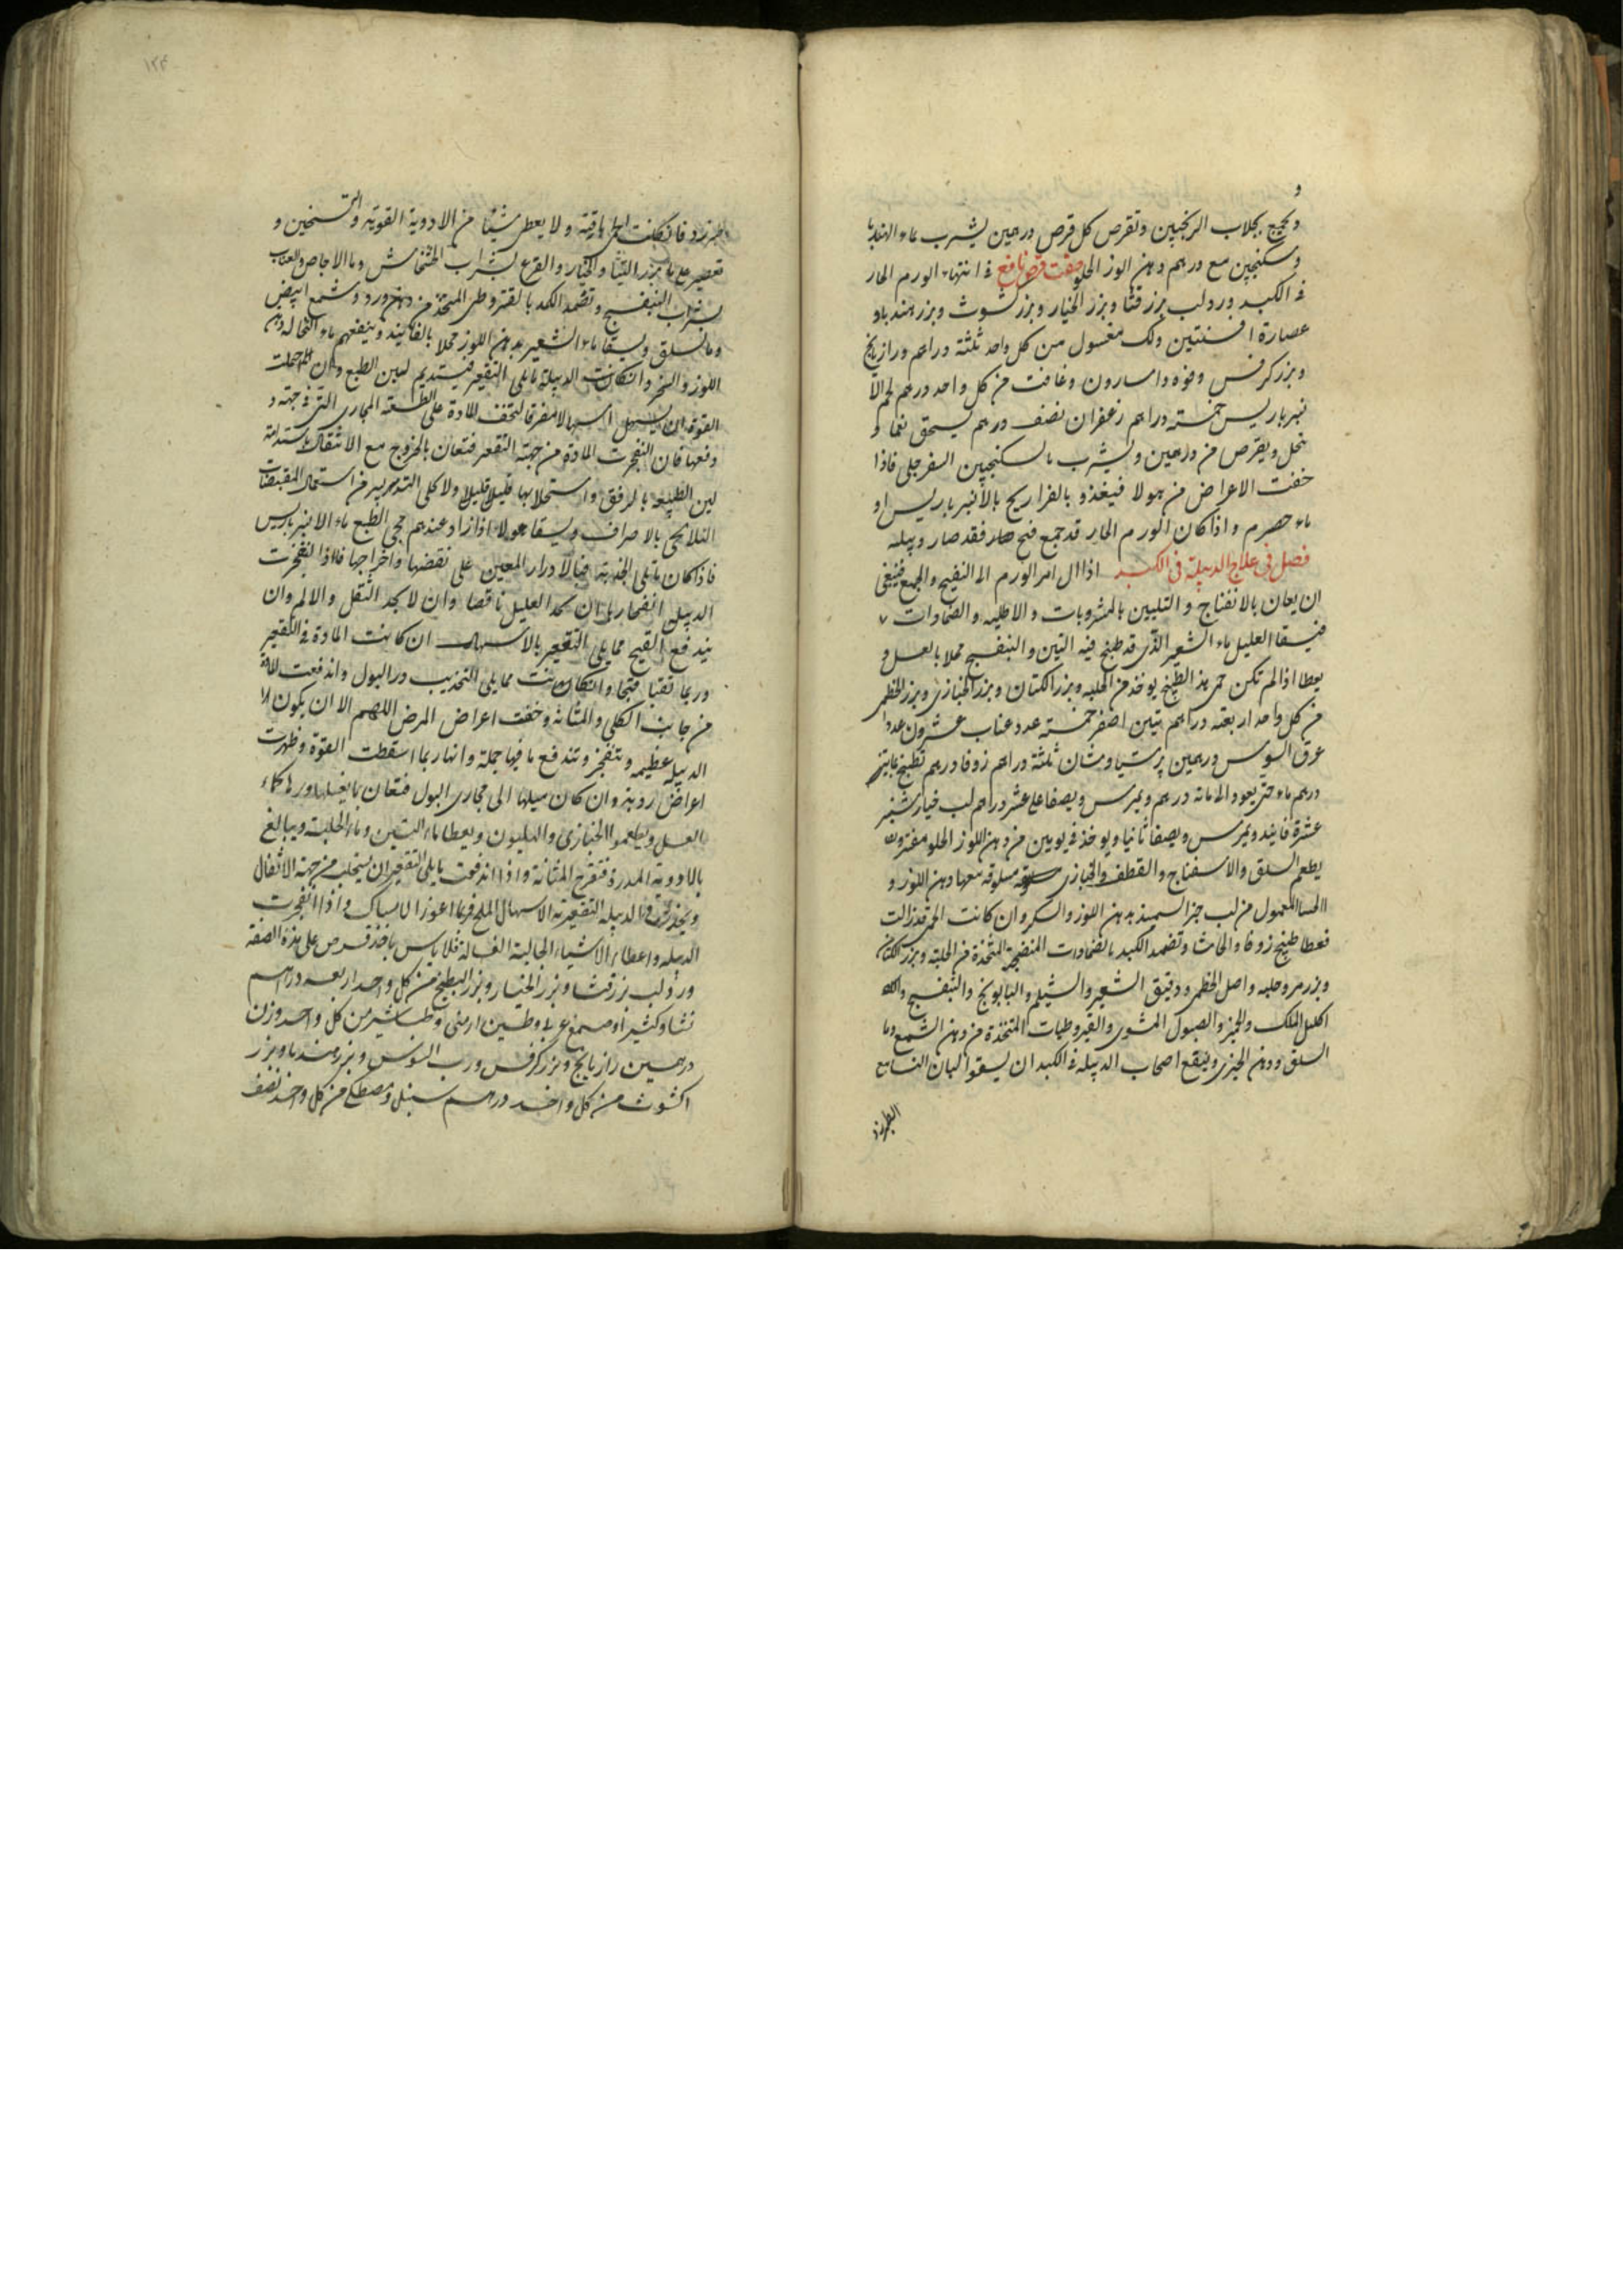 و
ويعجن بجلاب الرنجبين وتقرص كل قرص درهمين يشرب بماء الهندبا
وسكنجبين مع درهم دهن اللوز الحلو صفت قرص نافع فى انتهاء الورم الحار
فى الكبد ورد لب بزر قثا وبزر الخيار وبزر كشوث وبزر هندباو
عصارة افسنتين ولك مغسول من كل واحد ثلثة دراهم ورازيانج
وبزر كرفس وفوه واسارون وغافت من كل واحد درهم لحم الا
نبرباريس خمسة دراهم زعفران نصف درهم يسحق نعما و
ينخل ويقرص من درهمين ويشرب بالسكنجبين السفرجلى فاذا
خفت الاعراض من هولا فيغذو بالفراريج بالانبرباريس او
ماء حصرم واذا كان الورم الحار قد جمع فتح صار فقد صار دبيله
فصل فى علاج الدبيلة فى الكبد اذا ال امر الورم الى النفيح والجمع فينبغى
ان يعان بالانفتاح والتليين بالمشروبات والاطليه والضمادات
فيسقا العليل ماء الشعير الذى قد طبخ فيه التين والبنفسج محلا بالعسل و
يعطا اذا لم تكن حمى هذا الطبيخ يوخذ من الحلبه وبزر الكتان وبزر الخبازى وبزر الخطمى
من كل واحد اربعة دراهم تين اصفر خمسة عدد عناب عشرون عددا
عرق السوس درهمين پرسياوشان ثلثة دراهم زوفا درهم تطبخ
درهم ماء حتى يعود الى مائة درهم ويمرس ويصفا على عشر دراهم لب خيارشنبر
عشرة فانيد ويمرس ويصفا ثانيا ويوخذ فى يومين من دهن اللوز الحلو
يطعم السلق والاسفناج والقطف والخبازى مسلوقه معها دهن اللوز و
الحسا المعمول من لب خبز السميذ بدهن اللوز والسكر وان كانت الحمى قد زالت
فيعطا طبيخ زوفا والحاشا وتضمد الكبد بالضمادات المنضجة المتخذة من الحلبة وبزر الكتان
وبزر مر وحلبه واصل الخطمى ودقيق الشعير والشيلم والبابونج والبنفسج
اكليل الملك والخبز والبصول المشوى والقيروطيات المتخذة من دهن الشمع وما
السلق ودهن الخيرى وينفع اصحاب الدبيله فى الكبد ان يسقوا البان النسا مع
الطبرزد
١٢٤
طبرزد فانكانت الحمى باقية ولا يعطى شيئا من الادوية القوية التسخين و
تقتصر على ماء بزر القثا والخيار والقرع بشراب الخشخاش وما الاجاص والعناب
بشراب البنفسج وتضمد الكبد بالقيروطى المتخذ من دهن ورد وشمع ابيض
وما السلق ويسقا ماء الشعير بدهن اللوز محلا بالفانيد وينفعهم ماء النخاله ودهن
اللوز والسكر وانكانت الدبيلة مما يلى التقعير فيستديم لهلين الطبع وان احتملت
القوة ان يسهل اسهالا مفرقا لتخف المادة على الطبيعة المجارى التى فى جهته و
دفعها فان انفجرت المادة من جهته التقعير فتعان بالخروج مع الاثقال باستدامة
لين الطبيعه بالرفق واستحلابها قليلا قليلا ولا كلى التدبير من استعمال المقبضات
بالاصراف ويسقا هولاء اذا زاد عندهم مجى الطبع ماء الانبرباريس
فاذا كان مايلى الحدبة فبالادرار المعين على نقضها واخراجها فاذا انفجرت
الدبيلى انفجارها ان يجد العليل ناقصا وان لا يجد الثقل والالم وان
يندفع القيح مما يلى التقعير بالاسهال ان كانت المادة فى التقعير
وربما تقيا قيحا وانكانت مما يلى التحذيب در البول واندفعت المادة
من جانب الكلى والمثانه وخفت اعراض المرض اللهم الا ان يكون
الدبيله عظيمه وتنفجز وتندفع ما فيها جملة وانها ربما اسقطت القوة وظهرت
اعراض رديئه وان كان ميلها الى مجارى البول فتعان بما يغسلها ويدرها كماء
العسل ويطعموا الخبازى والهليون ويعطا ماء التين وماء الحلبة ويبالغ
بالادوية المدرة فتقرح المثانة واذا اندفعت مايلى التقعير ان يتحلب من جهة الاثفال
ويحذر فى الدبيله التقعيرية الاسهال الملح فربما اعوز الامساك واذا انفجرت
الدبيله واعطاء الاشياء الجالية الغسالة فلا باس باخذ قرص على هذه الصفه
ورد ولب بزر قثا وبزر الخيار وبزر البطيخ من كل واحد اربعه دراهم
نشا وكثيرا وصمغ عربى وطين ارمنى وطباشير من كل واحد وزن
درهمين رازيانج وبزر كرفس ورب السوس وبزر هندبا وبزر
اكشوث من كل واحد درهم سنبل ومصطكى من كل واحد نصف